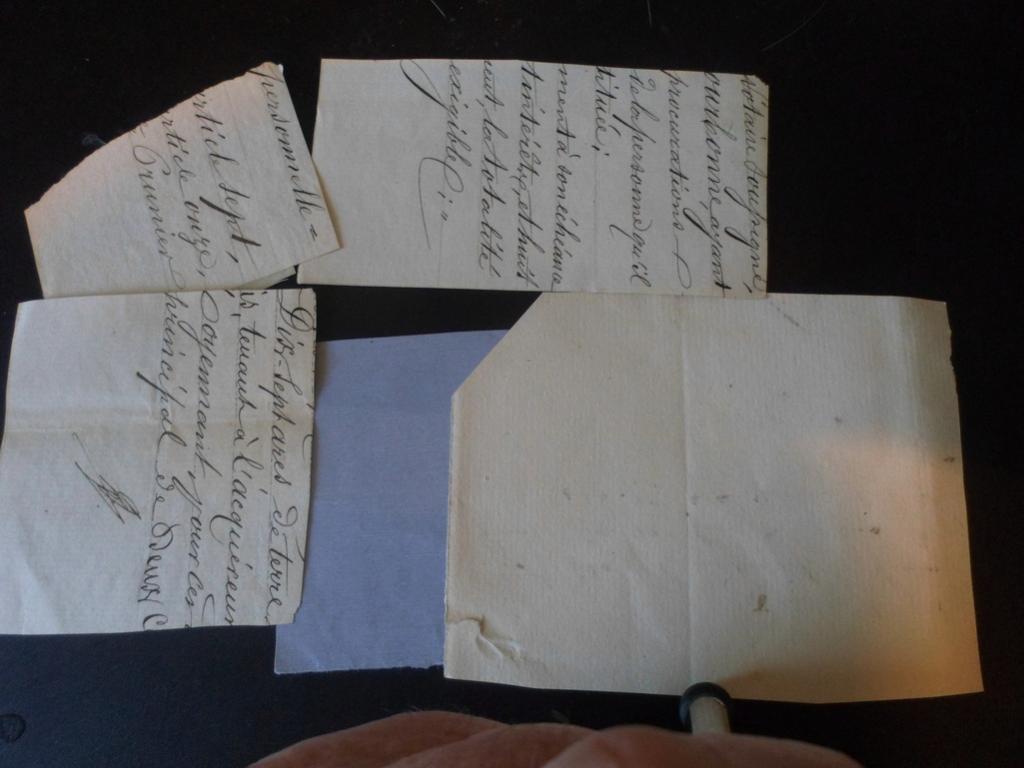 personnelle
article sept,
article onze,
Crumier
notaire soussigné,
ayant
procurations
de la personne qu'il
titué;
ment à son échéance
d'intérêts, et huit
la totalité
exigible;
Dix-sept ares de terre
tenant à l'acquéreur
Moyennant pour ces
principal de deux C